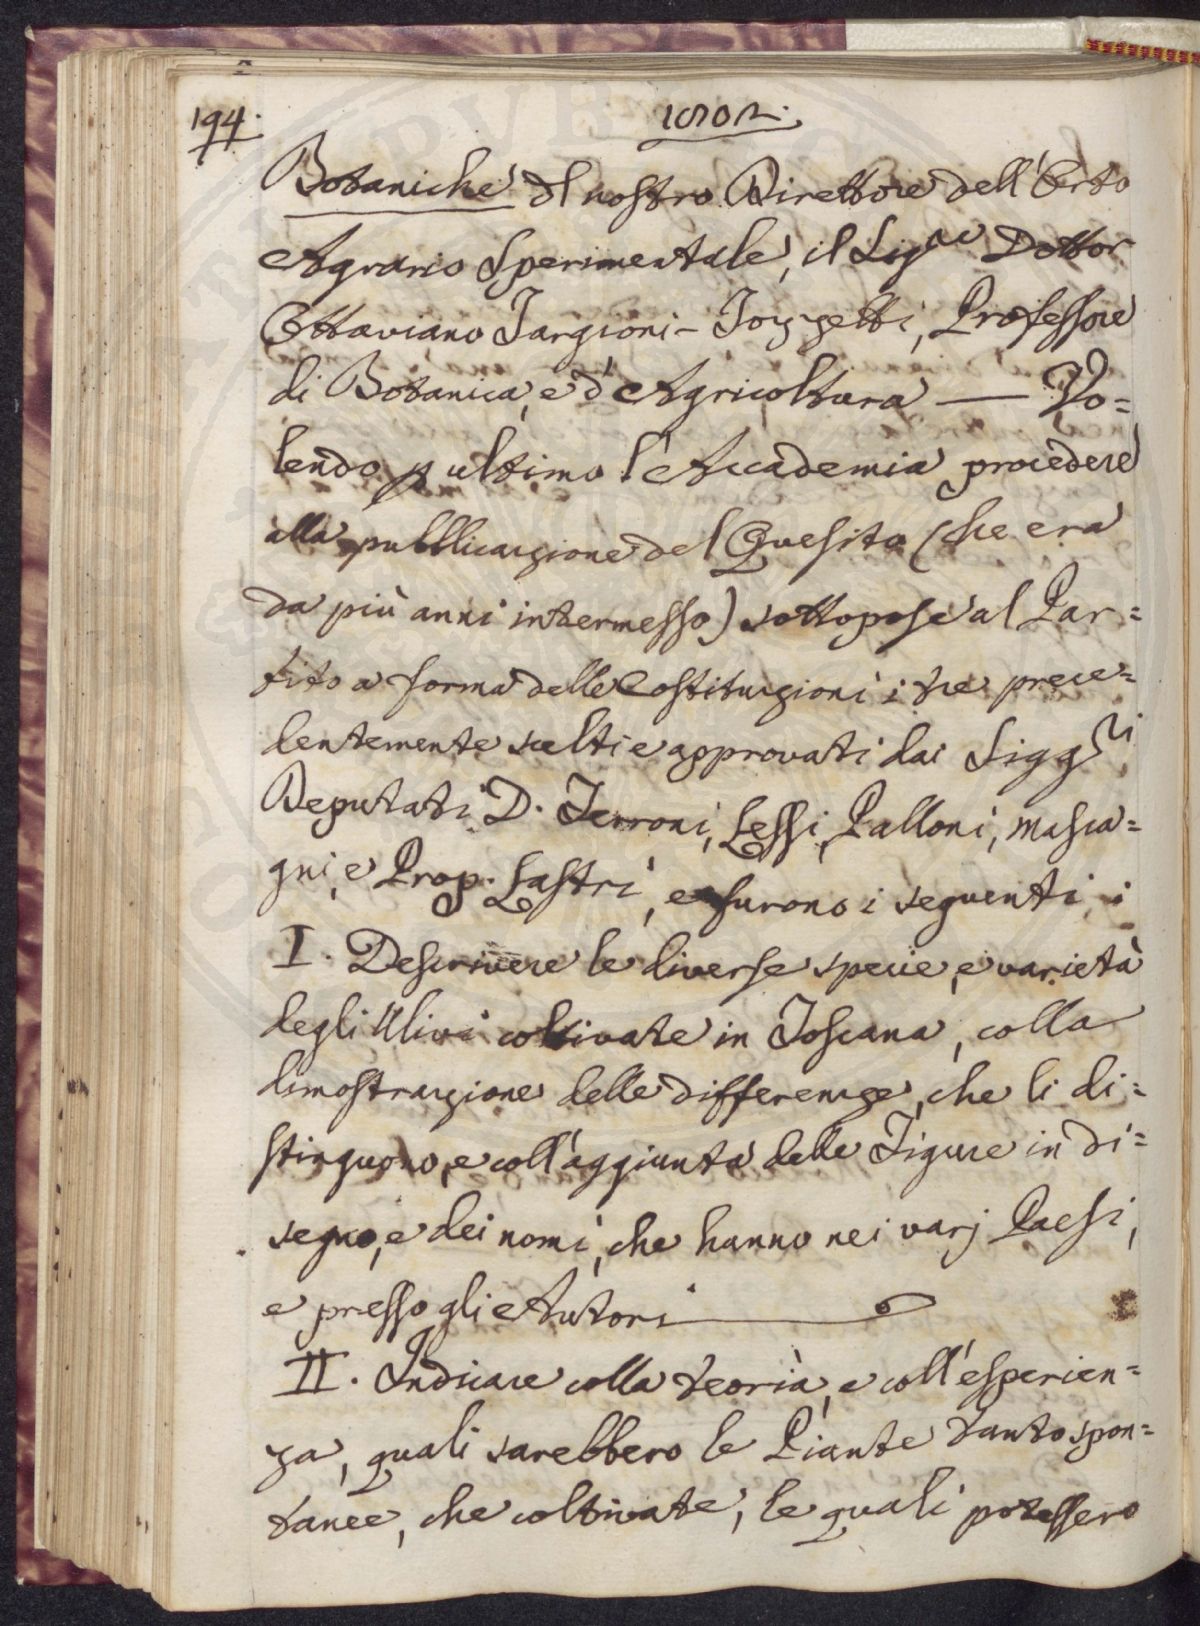 194.
1802.
Botaniche Il nostro Direttore dell'Orto
Agrario Sperimentale, il Sigre Dottor
Ottaviano Targioni-Tozzetti, Professore
di Botanica, e d'Agricoltura — Vo=
lendo p ultimo l'Accademia procedere
alla pubblicazione del Quesito (che era
da più anni intermesso) sottopose al Par=
tito a forma delle Costituzioni i tre prece=
dentemente scelti e approvati dai Siggri
Deputati D. Terroni, Lessi, Palloni, Masca=
gni, e Prop. Lastri, e furono i seguenti
I. Descrivere le diverse specie, e varietà
degli Ulivi coltivate in Toscana, colla
dimostrazione delle differenze, che li di=
stinguono, e coll'aggiunta delle Figure in di=
segno, e dei nomi, che hanno nei varj Paesi,
e presso gli Autori
II. Indicare colla teoria, e coll'esperien=
za, quali sarebbero le Piante tanto spon=
tanee, che coltivate, le quali potessero